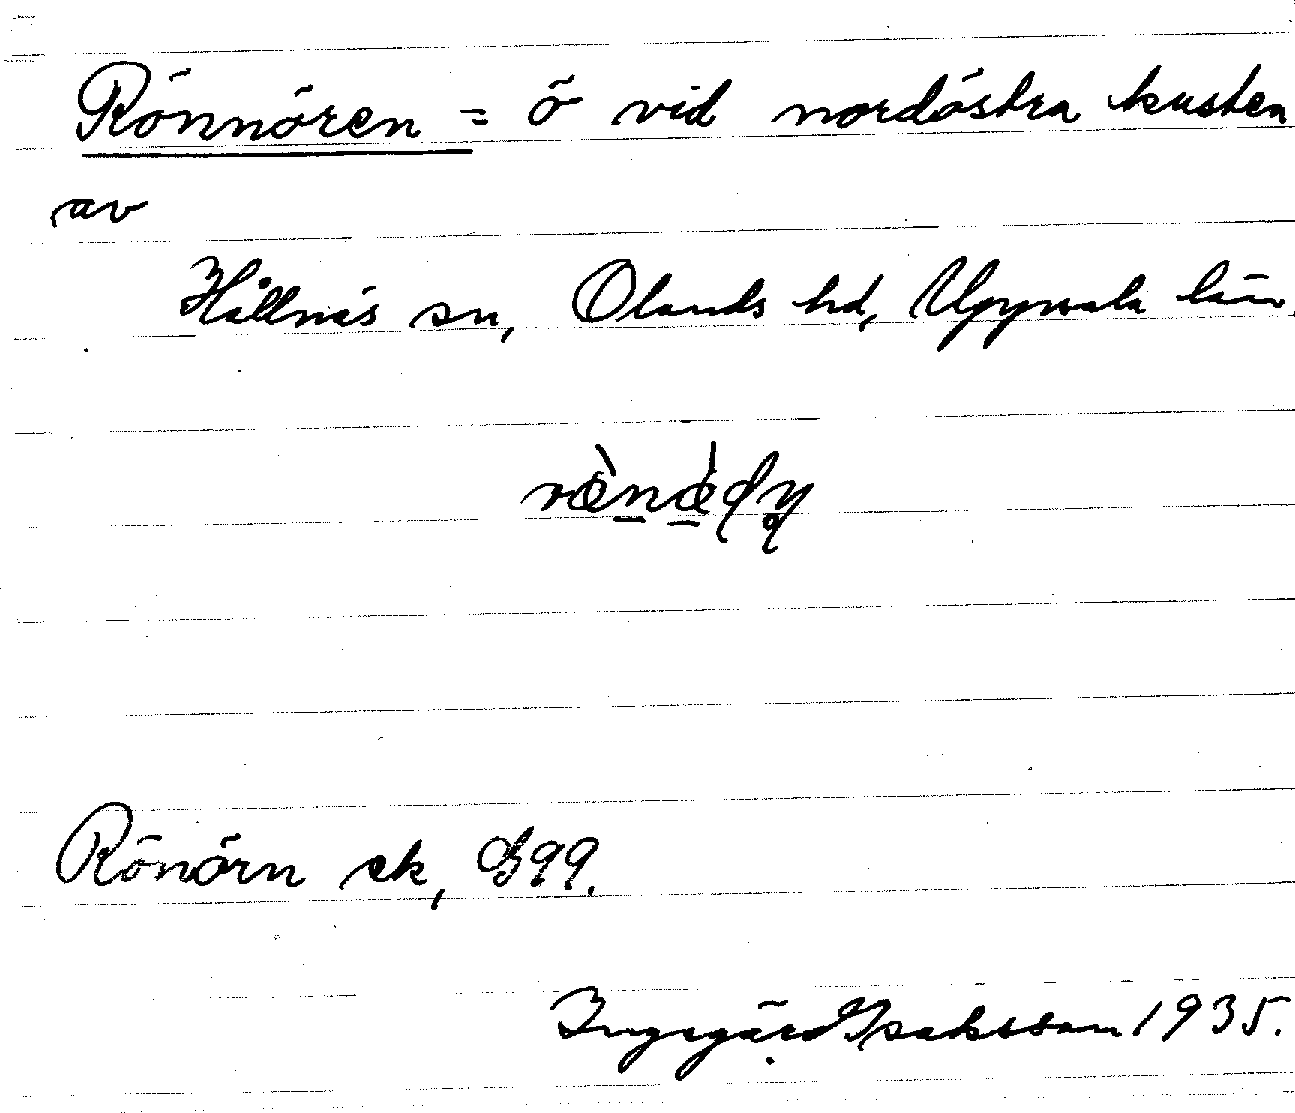 Rönnören = ö vid nordöstra kusten
av
Hållnäs sn, Olands hd, Uppsala län.
Rönörn ek,
Ingegärd Isaksson 1935.